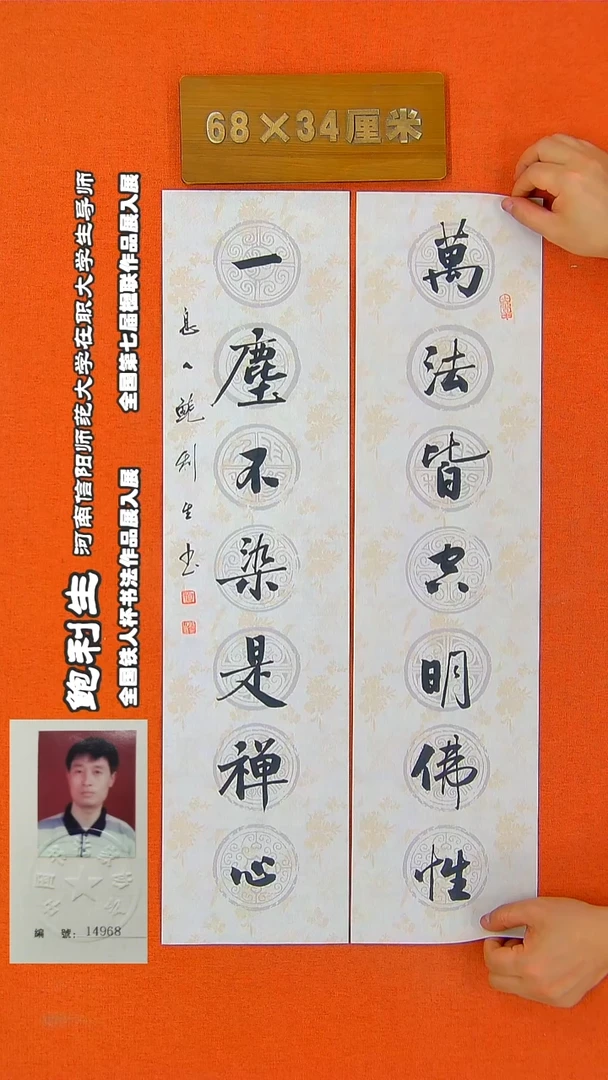 68×34厘米
萬法皆空明佛性
一塵不染是禅心
鲍利生书
鲍利生 河南信阳师范大学在职大学生导师
全国铁人杯书法作品展入展 全国第七届楹联作品展入展
編 號：14968